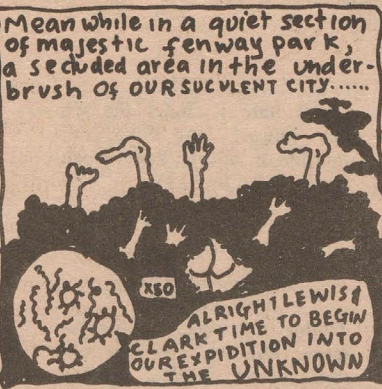 Meanwhile in a quiet section
of majestic fenway park,
a secluded area in the under-
brush of OUR SUCULENT CITY......
X50
ALRIGHT LEWIS &
CLARK TIME TO BEGIN
OUR EXPIDITION INTO
THE UNKNOWN